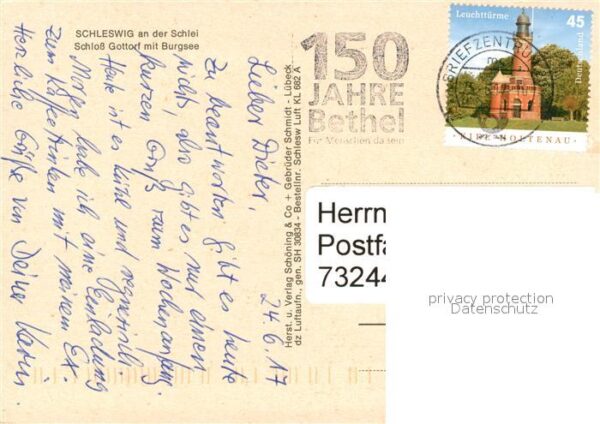 SCHLESWIG an der Schlei
Schloß Gottorf mit Burgsee
24.6.17
Lieber Dieter,
zu beantworten gibt es heute
nichts, also gibt es nur einen
kurzen Gruß zum Wochenanfang.
Heute ist es kühl und regnerisch.
Morgen habe ich eine Einladung
zum Kaffeetrinken mit meinem Ex.
Herzliche Grüße von Deiner Karin
Herst. u. Verlag Schöning & Co + Gebrüder Schmidt - Lübeck
dz Luftaufn., gen. SH 30834 - Bestellnr. Schlesw Luft KL 682 A
150
JAHRE
Bethel
Für Menschen da sein
BRIEFZENTRUM
Leuchttürme
45
Deutschland
KIEL-HOLTENAU
Herrn
Postfa
73244
privacy protection
Datenschutz